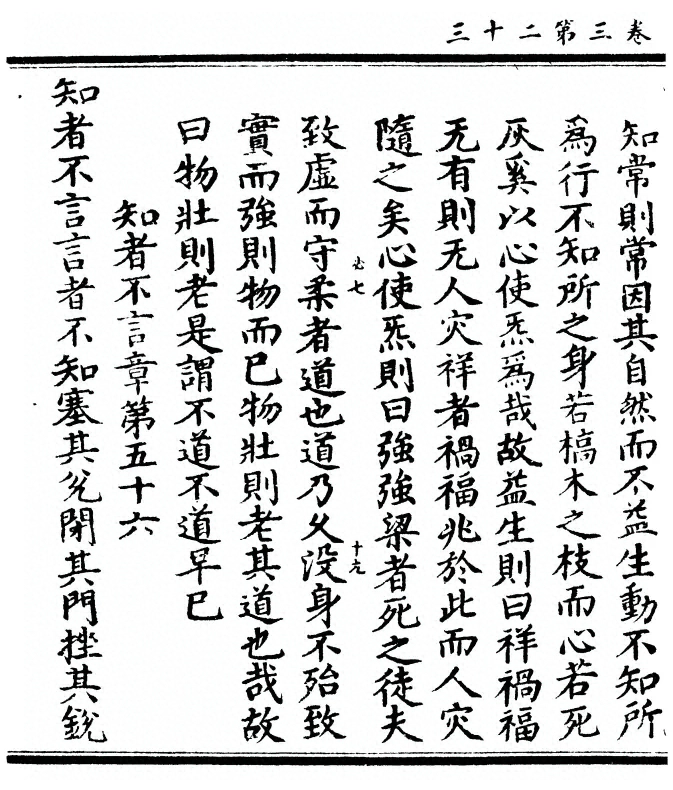 卷三第二十三
知常則常因其自然而不益生動不知所
為行不知所之身若槁木之枝而心若死
灰奚以心使炁為哉故益生則曰祥禍福
无有則无人灾祥者禍福兆於此而人灾
隨之矣心使炁則曰強強梁者死之徒夫
必七
致虛而守柔者道也道乃久没身不殆致
十九
實而強則物而已物壯則老其道也哉故
曰物壯則老是謂不道不道早已
知者不言章第五十六
知者不言言者不知塞其兌閉其門挫其銳